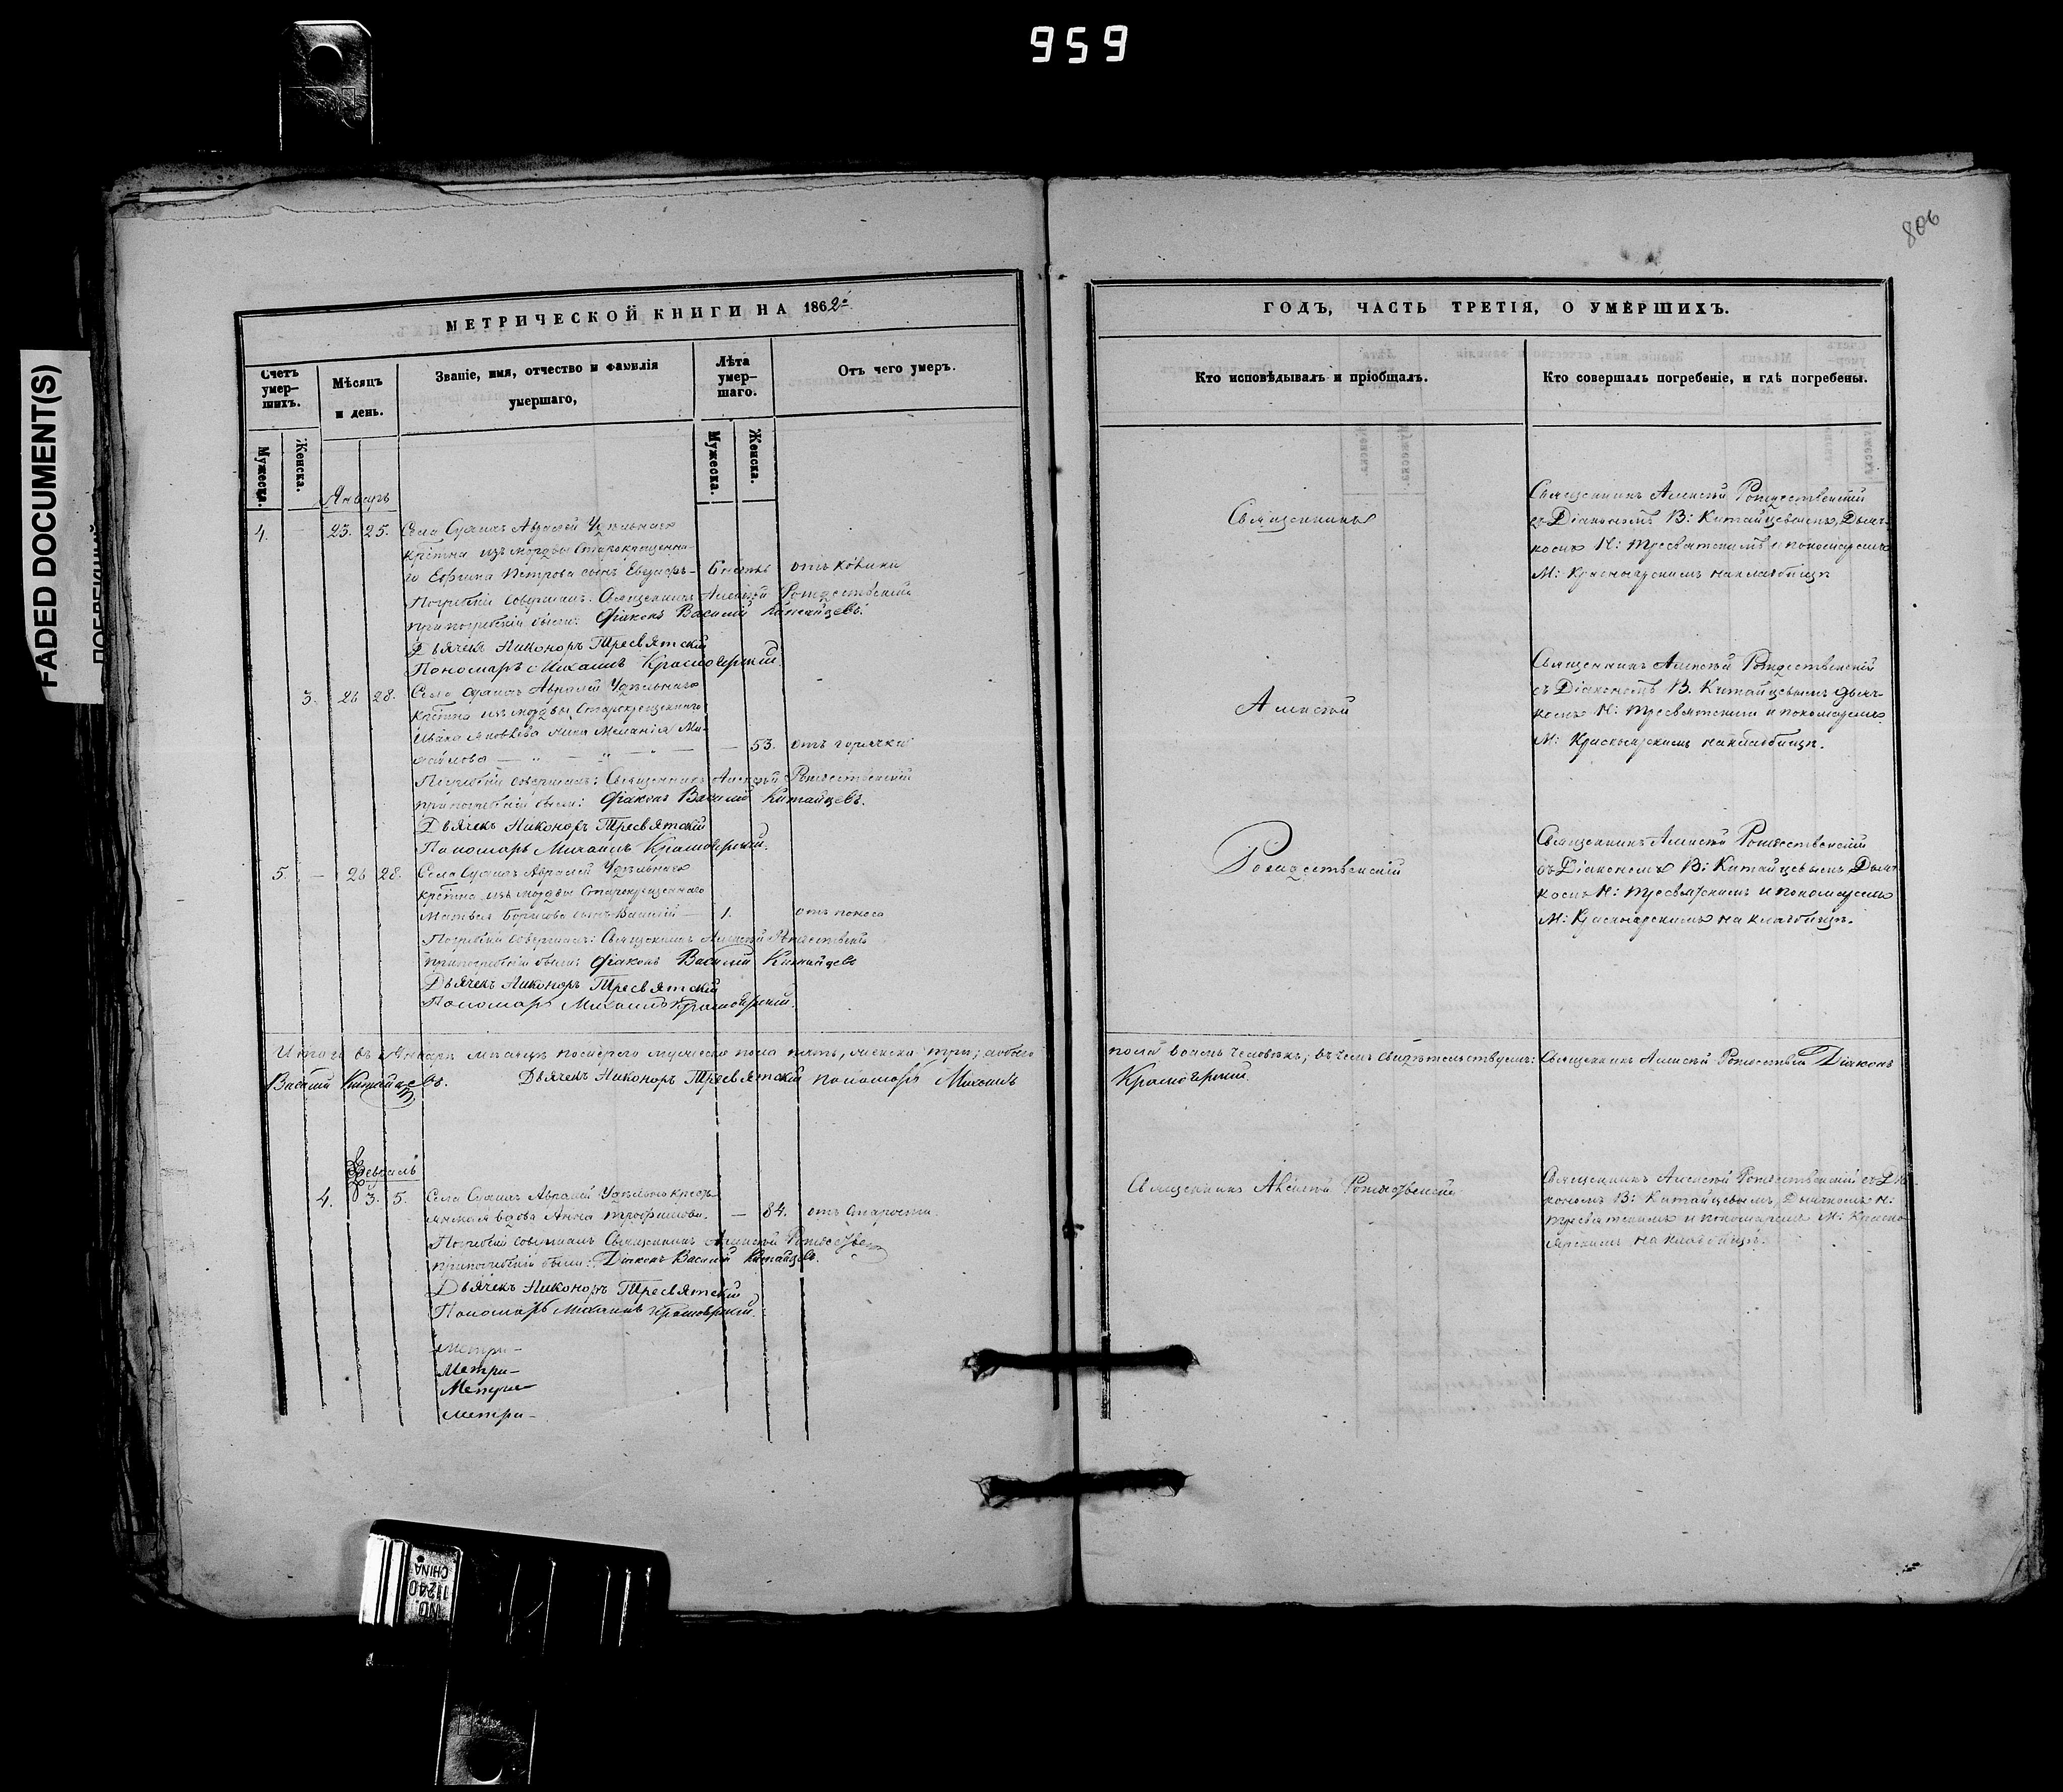 959
806
FADED DOCUMENT(S)
МЕТРИЧЕСКОЙ КНИГИ НА 1862
Счетъ умер-шихъ.
Мужеска.
Женска.
Мѣсяцъ и день.
Званіе, имя, отчество и фамилія умершаго,
Лѣта умер-шаго.
Мужеска.
Женска.
Отъ чего умеръ.
Январь
4. 23. 25. Села Авралей Удѣльнаго
крестьна изъ мордвы Старокрещенна-
го Ефима Петрова сынъ
Погребеніе совершалъ: Священникъ Алексѣй Рождественскій
при погребеніи были: Діаконъ Василій Китайцевъ.
Дьячекъ Никоноръ Тресвятскій
Пономарь Михаилъ Красноярскій.
3. 26 28. Села Авралей Удѣльнаго
крестьна изъ мордвы Старокрещеннаго
Ивана Яковлева жена Меланія Ми-
— 53. отъ горячки
Погребеніе совершалъ: Священникъ Алексѣй Рождественскій
при погребеніи были: Діаконъ Василій Китайцевъ.
Дьячекъ Никоноръ Тресвятскій
Пономарь Михаилъ Красноярскій.
5. — 26 28. Села Авралей Удѣльнаго
крестьна изъ мордвы Старокрещеннаго
Матвея Борисова сынъ Василій — 1. отъ поноса
Погребеніе совершалъ: Священникъ Алексѣй Рождественскій
при погребеніи были: Діаконъ Василій Китайцевъ
Дьячекъ Никоноръ Тресвятскій
Пономарь Михаилъ Красноярскій.
Итого въ Январѣ мѣсяцѣ померло мужеска пола пять, женска три; обоего
Василій Китайцевъ. Дьячекъ Никоноръ Тресвятскій пономарь Михаилъ
Февраль
4. 3. 5. Села Авралей Удѣльно крестъ-
янская вдова Анна Трофимова. — 84. отъ старости.
Погребеніе совершалъ Священникъ Алексѣй
при погребеніи были: Діаконъ Василій Китайцевъ.
Дьячекъ Никоноръ Тресвятскій
Пономарь Михаилъ Красноярскій.
Метри-
Метри-
Метри-
Метри-
ГОДЪ, ЧАСТЬ ТРЕТІЯ, О УМЕРШИХЪ.
Кто исповѣдывалъ и пріобщалъ.
Кто совершалъ погребеніе, и гдѣ погребены.
Священникъ
Алексѣй
Рождественскій
Священникъ Алексѣй Рождественскій
съ Діакономъ В: Китайцевымъ, Дьяч-
комъ Н: Тресвятскимъ и пономаремъ
М: Красноярскимъ на кладбищѣ
Священникъ Алексѣй Рождественскій
съ Діакономъ В. Китайцевымъ дьяч-
комъ Н: Тресвятскимъ и пономаремъ
М: Красноярскимъ на кладбищѣ.
Священникъ Алексѣй Рождественскій
съ Діакономъ В: Китайцевымъ Дьяч-
комъ Н: Тресвятскимъ и пономаремъ
М: Красноярскимъ на кладбищѣ.
пола восемь человѣкъ; въ чемъ свидѣтельствуемъ: Священникъ Алексѣй Діаконъ
Красноярскій.
Священникъ Алексѣй Рождественскій
Священникъ Алексѣй Рождественскій съ Діа-
кономъ В: Китайцевымъ, Дьячкомъ Н:
Тресвятскимъ и пономаремъ М: Красно-
ярскимъ на кладбищѣ.
NO. 11240
CHINA